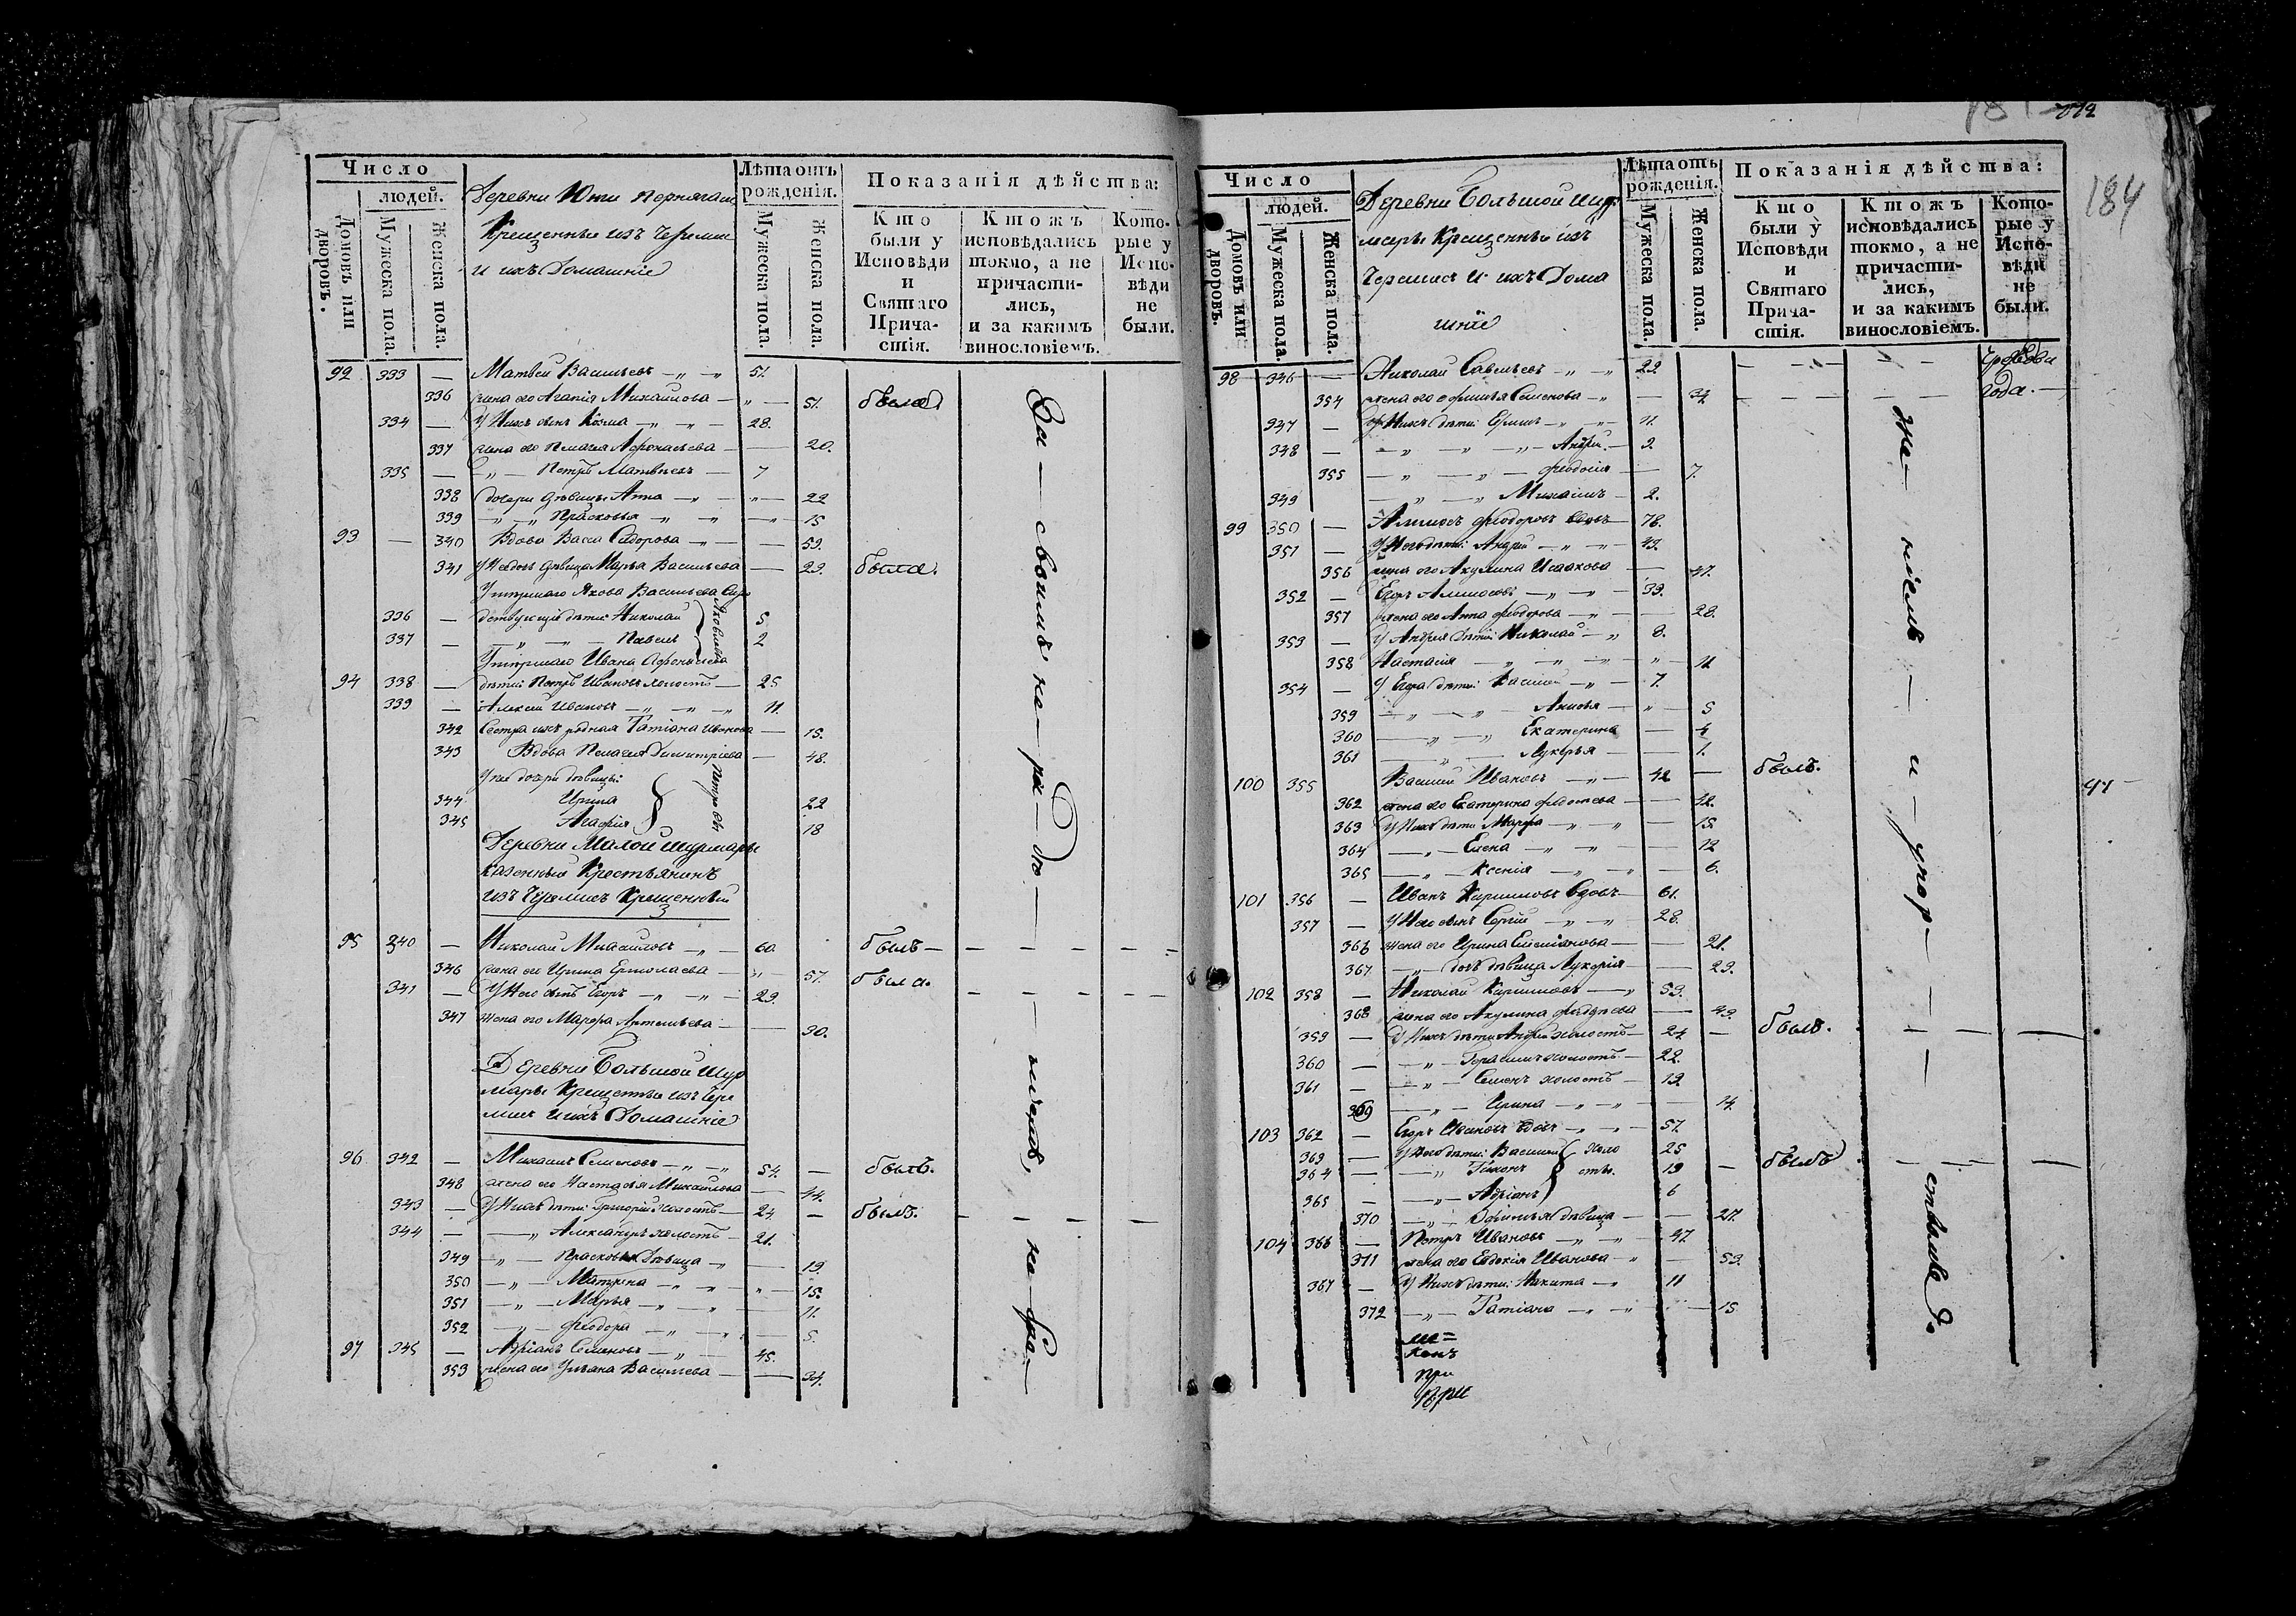 Число
людей.
Домовъ или дворовъ.
Мужеска пола.
Женска пола.
Деревни Юти
Крещенные изъ Черемис
и ихъ Домашніе
Лѣта отъ рожденія.
Мужеска пола.
Женска пола.
Показанія дѣйства:
Кто были у Исповѣди и Святаго Прича-стія.
Ктожъ исповѣдались токмо, а не причасти-лись, и за какимъ винословіемъ.
Кото-рые у Испо-вѣди не были.
92 333 — Матвей Васильевъ 51.
336 жена его Агапія Михаилова 51. была
334 — У Нихъ сынъ Козма 28.
337 жена его Пелагея Афонасьева 20.
335 — Петръ Матвеевъ 7
338 дочери девицы Анна 22
339 Прасковья 15
93 — 340 Вдова Васса Сидорова 59.
341 У Неядочь девица Марья Васильева 29. была.
Умершаго Якова Васильева
336 — дети Николай 5
337 — Павелъ 2
Яковлевы
Умершаго Ивана Афонасьева
94 338 — дети: Петръ Ивановъ холостъ 25
339 — Алексей Ивановъ 11.
342 Сестра ихъ родная Татіана Иванова 15.
343 Вдова Пелагея Димитріева 48.
У нее дочери девицы:
344 Ирина 22
345 Агафія 18
Петровы
Деревни Малой Шурмары
казенный Крестьянинъ
изъ Черемисъ Крещенный
95 340 — Николай Михаиловъ 60. былъ
346 жена его Ирина Ермолаева 57. была.
341 — У Него сынъ Егоръ 29.
347 жена его Марфа Артемьева 30.
Деревни Большой Шур
мары Крещеные изъ Чере
мисъ и ихъ Домашніе
96 342 — Михаилъ Семеновъ 54. былъ.
348 жена его Настасья Михаилова 44.
343 — У Нихъ дети: Григорій холостъ 24. былъ.
344 — Александръ холостъ 21.
349 Прасковья Девица 19.
350 Матрена 15.
351 Марья 11.
352 Феодора 5.
97 345 — Адріанъ Семеновъ 45.
353 жена его Ульяна Васильева 34.
За — своимъ, не — ра — де —
Число
людей.
Домовъ или дворовъ.
Мужеска пола.
Женска пола.
Деревни Большой Шур
мары Крещенные изъ
Черемисъ и ихъ Дома
шніе
Лѣта отъ рожденія.
Мужеска пола.
Женска пола.
Показанія дѣйства:
Кто были у Исповѣди и Святаго Прича-стія.
Ктожъ исповѣдались токмо, а не причасти-лись, и за какимъ винословіемъ.
Кото-рые у Испо-вѣди не были.
184
98 346 — Николай Савельевъ 29.
года.
354 жена его Офимья Семенова 34
347 — У Нихъ дети: Ефимъ 11.
348 — Андрей 9.
355 Феодосія 7.
349 Михаилъ 2.
99 350 — Алмосъ Феодоровъ вдовъ 78.
351 — У Него дети: Андрей 49.
356 жена его Акулина Исаакова 47.
352 — Егоръ Алмосовъ 39.
357 жена его Анна Феодорова 28.
353 — У Андрея дети: Николай 8.
358 Настасія 11
354 — У Егора дети: Василей 7.
359 5
360 Екатерина 4
361 Лукерья 1.
100 355 Василий Ивановъ 42 — былъ.
362 жена его Екатерина Федотова 42.
363 У Нихъ дети Марфа 15.
364 Елена 12
365 Ксенія 6.
101 356 — Иванъ Кириловъ вдовъ 61.
357 — У Него сынъ Сергій 28.
366 жена его Ирина Емеліянова 21.
367 дочь девица Лукерія 29.
102 358 — Николай Кириловъ 59.
368 жена его Акулина 49.
359 — У Нихъ дети Андрей холостъ 24 — былъ.
360 — Герасимъ холостъ 22.
361 — Семенъ холостъ 19.
369 Ирина 14.
103 362 — Егоръ Ивановъ вдовъ 57.
363 — У Него дети: Василий 25
холо
сты.
364 — Тихонъ 19 — былъ
365 — Адріанъ 6
370 Офимья девица 27.
104 366 — Петръ Ивановъ 47.
371 жена его Евдокія Иванова 53.
367 — У Нихъ дети: Никита 11
372 Татіана 15
при